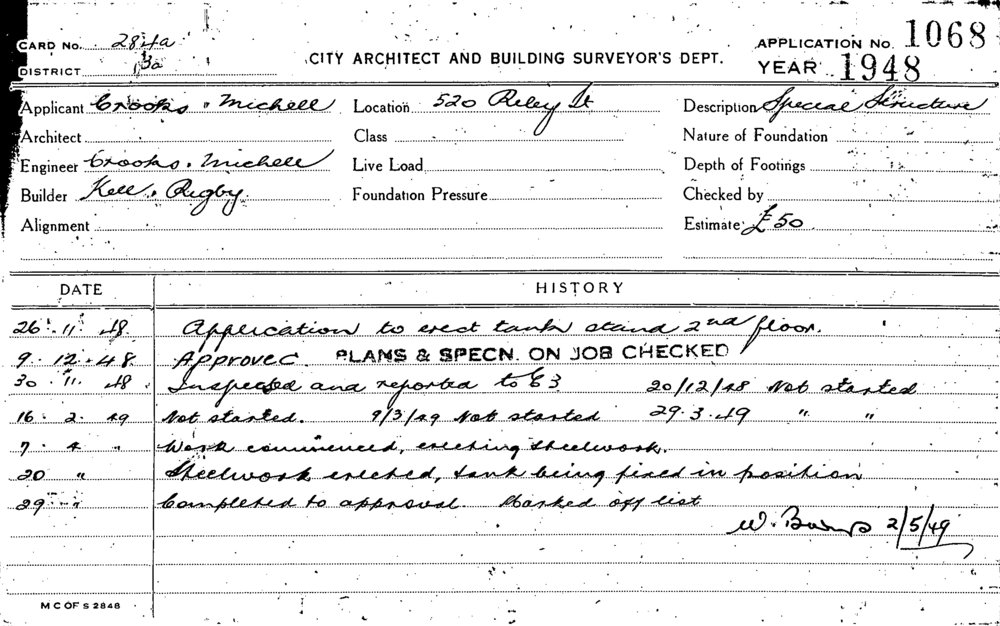 CARD No. 284a
DISTRICT 13a
CITY ARCHITECT AND BUILDING SURVEYOR'S DEPT.
APPLICATION No. 1068
YEAR 1948
Applicant Crooks & Michell Location 520 Riley St Description Special Structure
Architect Class Nature of Foundation
Engineer Crooks & Michell Live Load Depth of Footings
Builder Kell & Rigby. Foundation Pressure Checked by
Alignment Estimate £50
DATE HISTORY
26.11.48. Application to erect tank stand 2nd floor.
9.12.48. Approved PLANS & SPECN. ON JOB CHECKED
30.11.48. Inspected and reported to E3 20/12/48 Not started
16.2.49 Not started. 9/3/49 Not started 29.3.49 " "
7.4 " Work commenced, erecting steelwork.
20 " Steelwork erected, tank being fixed in position
29 " Completed to approval. Marked off list
W. 2/5/49
M C OF S 2848